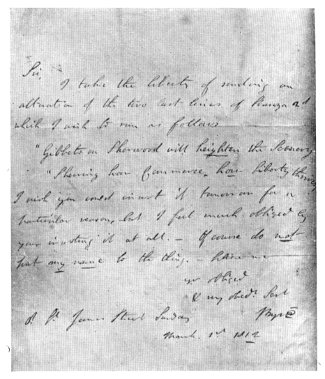 Sir,
I take the liberty of sending an
alteration of the two last lines of Stanza 2d
which I wish to run as follows
"Gibbets on Sherwood will heighten the Scenery
"Shewing how Commerce, how Liberty thrives
I wish you could insert it tomorrow for a
particular reason, but I feel much obliged by
your inserting it at all. — Of course do not
put my name to the thing. —
yr obliged
& very obedt Sert
Byron
8. St James Street Sunday
March 1st 1812